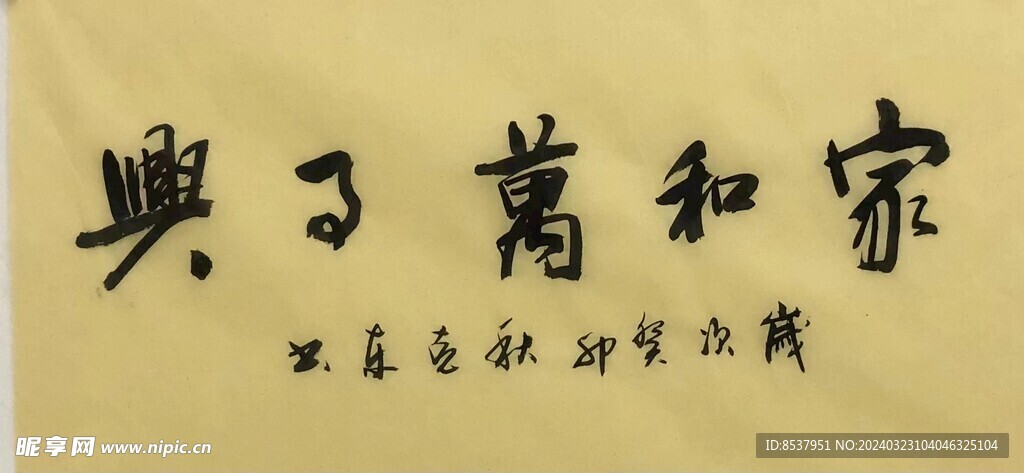 家和萬事興
歲次癸卯秋东书
昵享网 www.nipic.cn
ID:8537951 NO:20240323104046325104